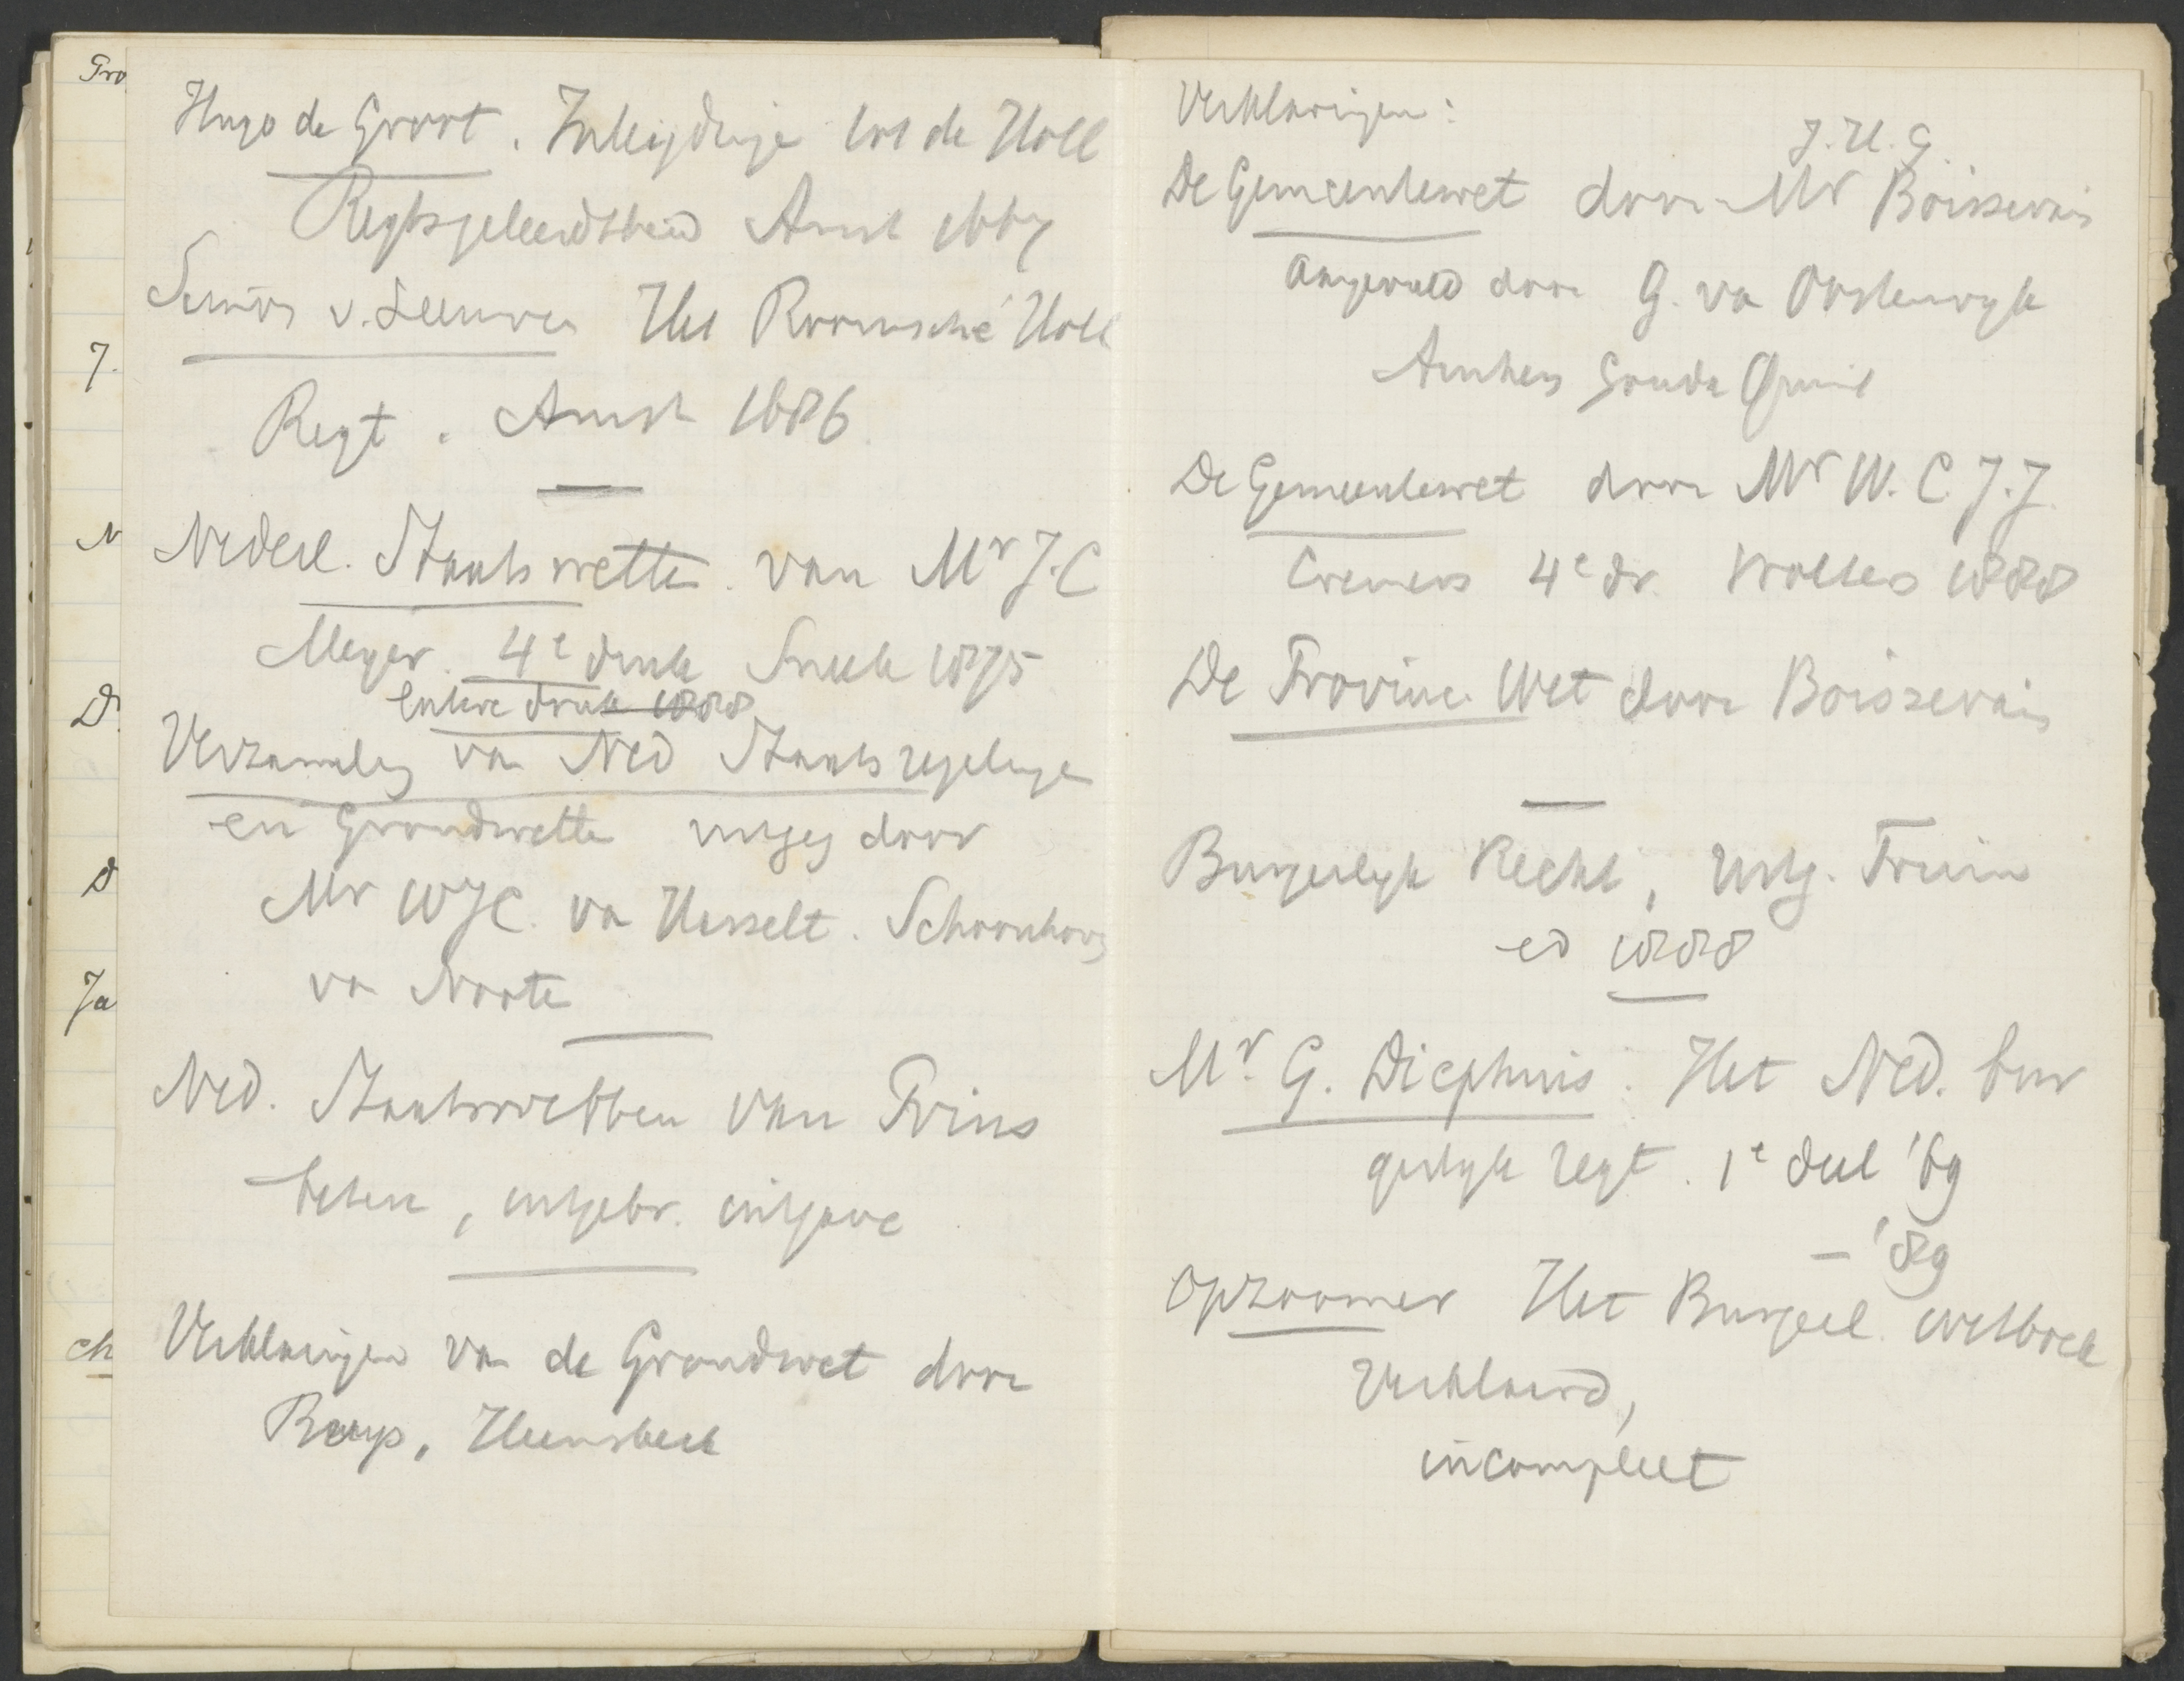 Hugo de Groot. Inleijdinge tot de Holl
Regtsgeleerdtheid Amst 1667
Simon v. Leeuwen Het Roomsche Holl
Regt. Amst 1686
Nederl. Staatswetten van Mr J.C
Meyer. 4e druk Sneek 1875
latere druk 1888
Verzameling van Ned Staatsregelingen
en Grondwetten uitgeg door
Mr WJC. van Hasselt. Schoonhoven
van Nooten
Ned. Staatswetten van Prins
betere, uitgebr. uitgave
Verklaringen van de Grondwet door
Buys, Heemskerk
Verklaringen:
J.H.G.
De Gemeentewet door Mr Boissevain
aangevuld door G. van Oosterwyk
Arnhem Gouda Quint
De Gemeentewet door Mr W.C.J.J.
Cremers 4e dr. Wolters 1888
De Provinc. Wet door Boissevain
Burgerlyk Recht, Uitg. Fruin
ed 1888
Mr. G. Diephuis. Het Ned. bur
gerlyk regt. 1e deel '69
– '89
Opzoomer Het Burgerl. wetboek
Verklaard,
incompleet
Gro
J.
N
D.
d
Ja
ch